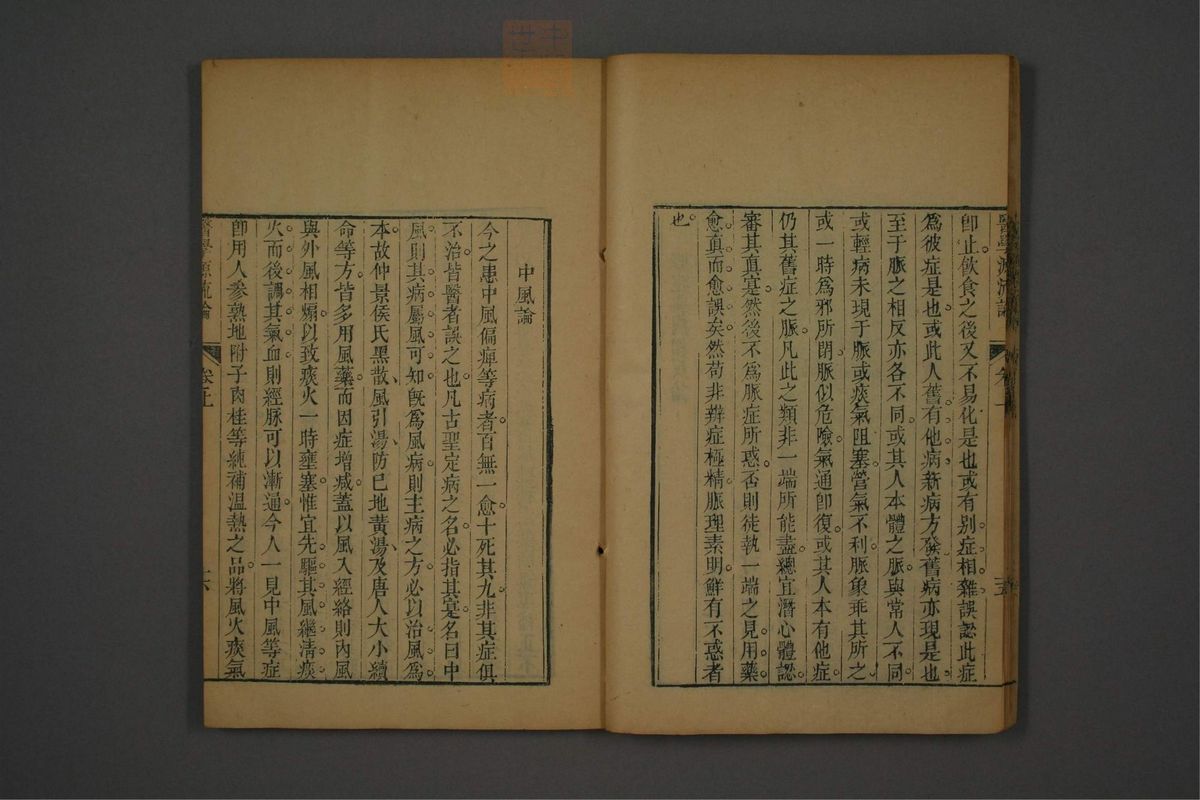 卽止飲食之後又不易化是也或有别症相雜誤認此症
爲彼症是也或此人舊有他病新病方發舊病亦現是也
至于脈之相反亦各不同或其人本體之脈與常人不同
或輕病未現于脈或痰氣阻塞營氣不利脈象乖其所之
或一時爲邪所閉脈似危險氣通卽復或其人本有他症
仍其舊症之脈凡此之類非一端所能盡總宜潛心體認
審其眞寔然後不爲脈症所惑否則徒執一端之見用藥
愈眞而愈誤矣然苟非辨症極精脈理素明鮮有不惑者
也
中風論
今之患中風偏痺等病者百無一愈十死其九非其症俱
不治皆醫者誤之也凡古聖定病之名必指其寔名曰中
風則其病屬風可知旣爲風病則主病之方必以治風爲
本故仲景侯氏黑散風引湯防已地黃湯及唐人大小續
命等方皆多用風藥而因症增减蓋以風入經絡則內風
與外風相煽以致痰火一時壅塞惟宜先驅其風繼淸痰
火而後調其氣血則經脈可以漸通今人一見中風等症
卽用人參熟地附子肉桂等純補溫熱之品將風火痰氣
醫學源流論
卷上
六